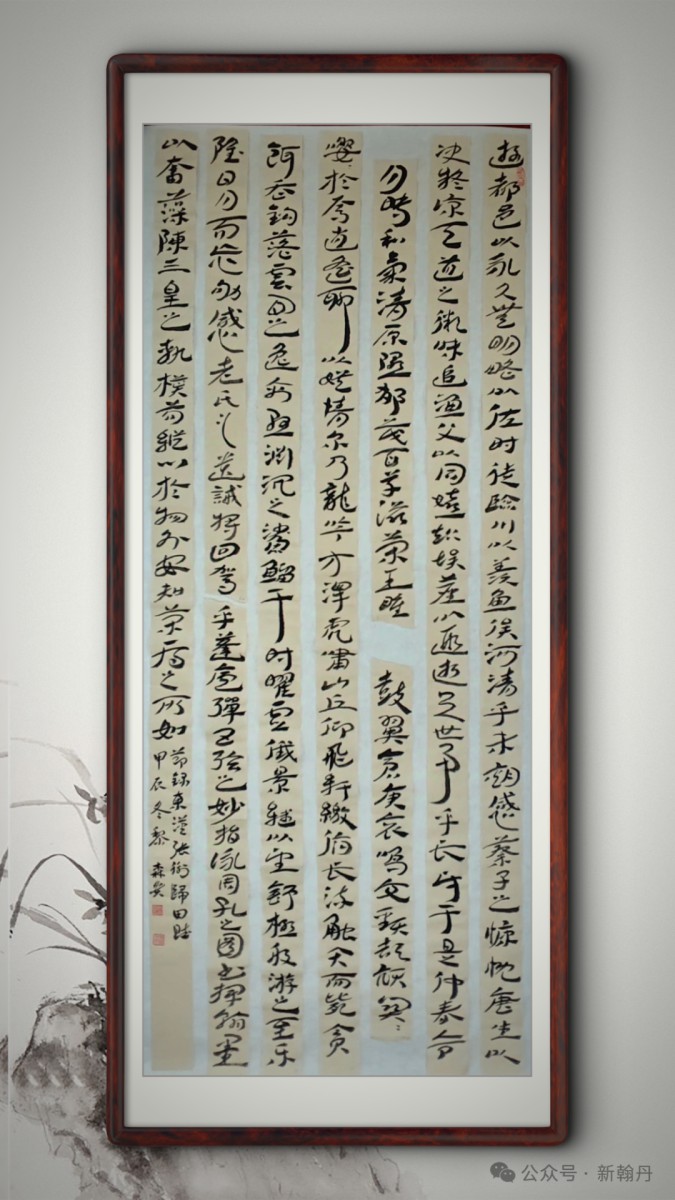 遊都邑以永久無明略以佐时徒臨川以羨魚俟河清乎未期感蔡子之慷慨唐生以
决疑諒天道之微昧追漁父以同嬉超埃塵以遐逝与世事乎長辞于是仲春令
月時和氣清原隰郁茂百草滋榮王雎鼓翼倉庚哀鳴交頸頡頏關〻
嚶〻於焉逍遥聊以娱情尔乃龍吟方澤虎嘯山丘仰飛纤繳俯長流觸矢而斃貪
餌吞鉤落雲間之逸禽懸淵沉之鯊鰡于时曜靈俄景継以望舒極般游之至乐
雖日夕而忘劬感老氏之遺誡將回駕乎蓬廬彈五弦之妙指詠周孔之圖书揮翰墨
以奮藻陳三皇之軌模苟縱心於物外安知榮辱之所如
節録東漢張衡歸田賦
甲辰冬黎森
公众号·新翰丹